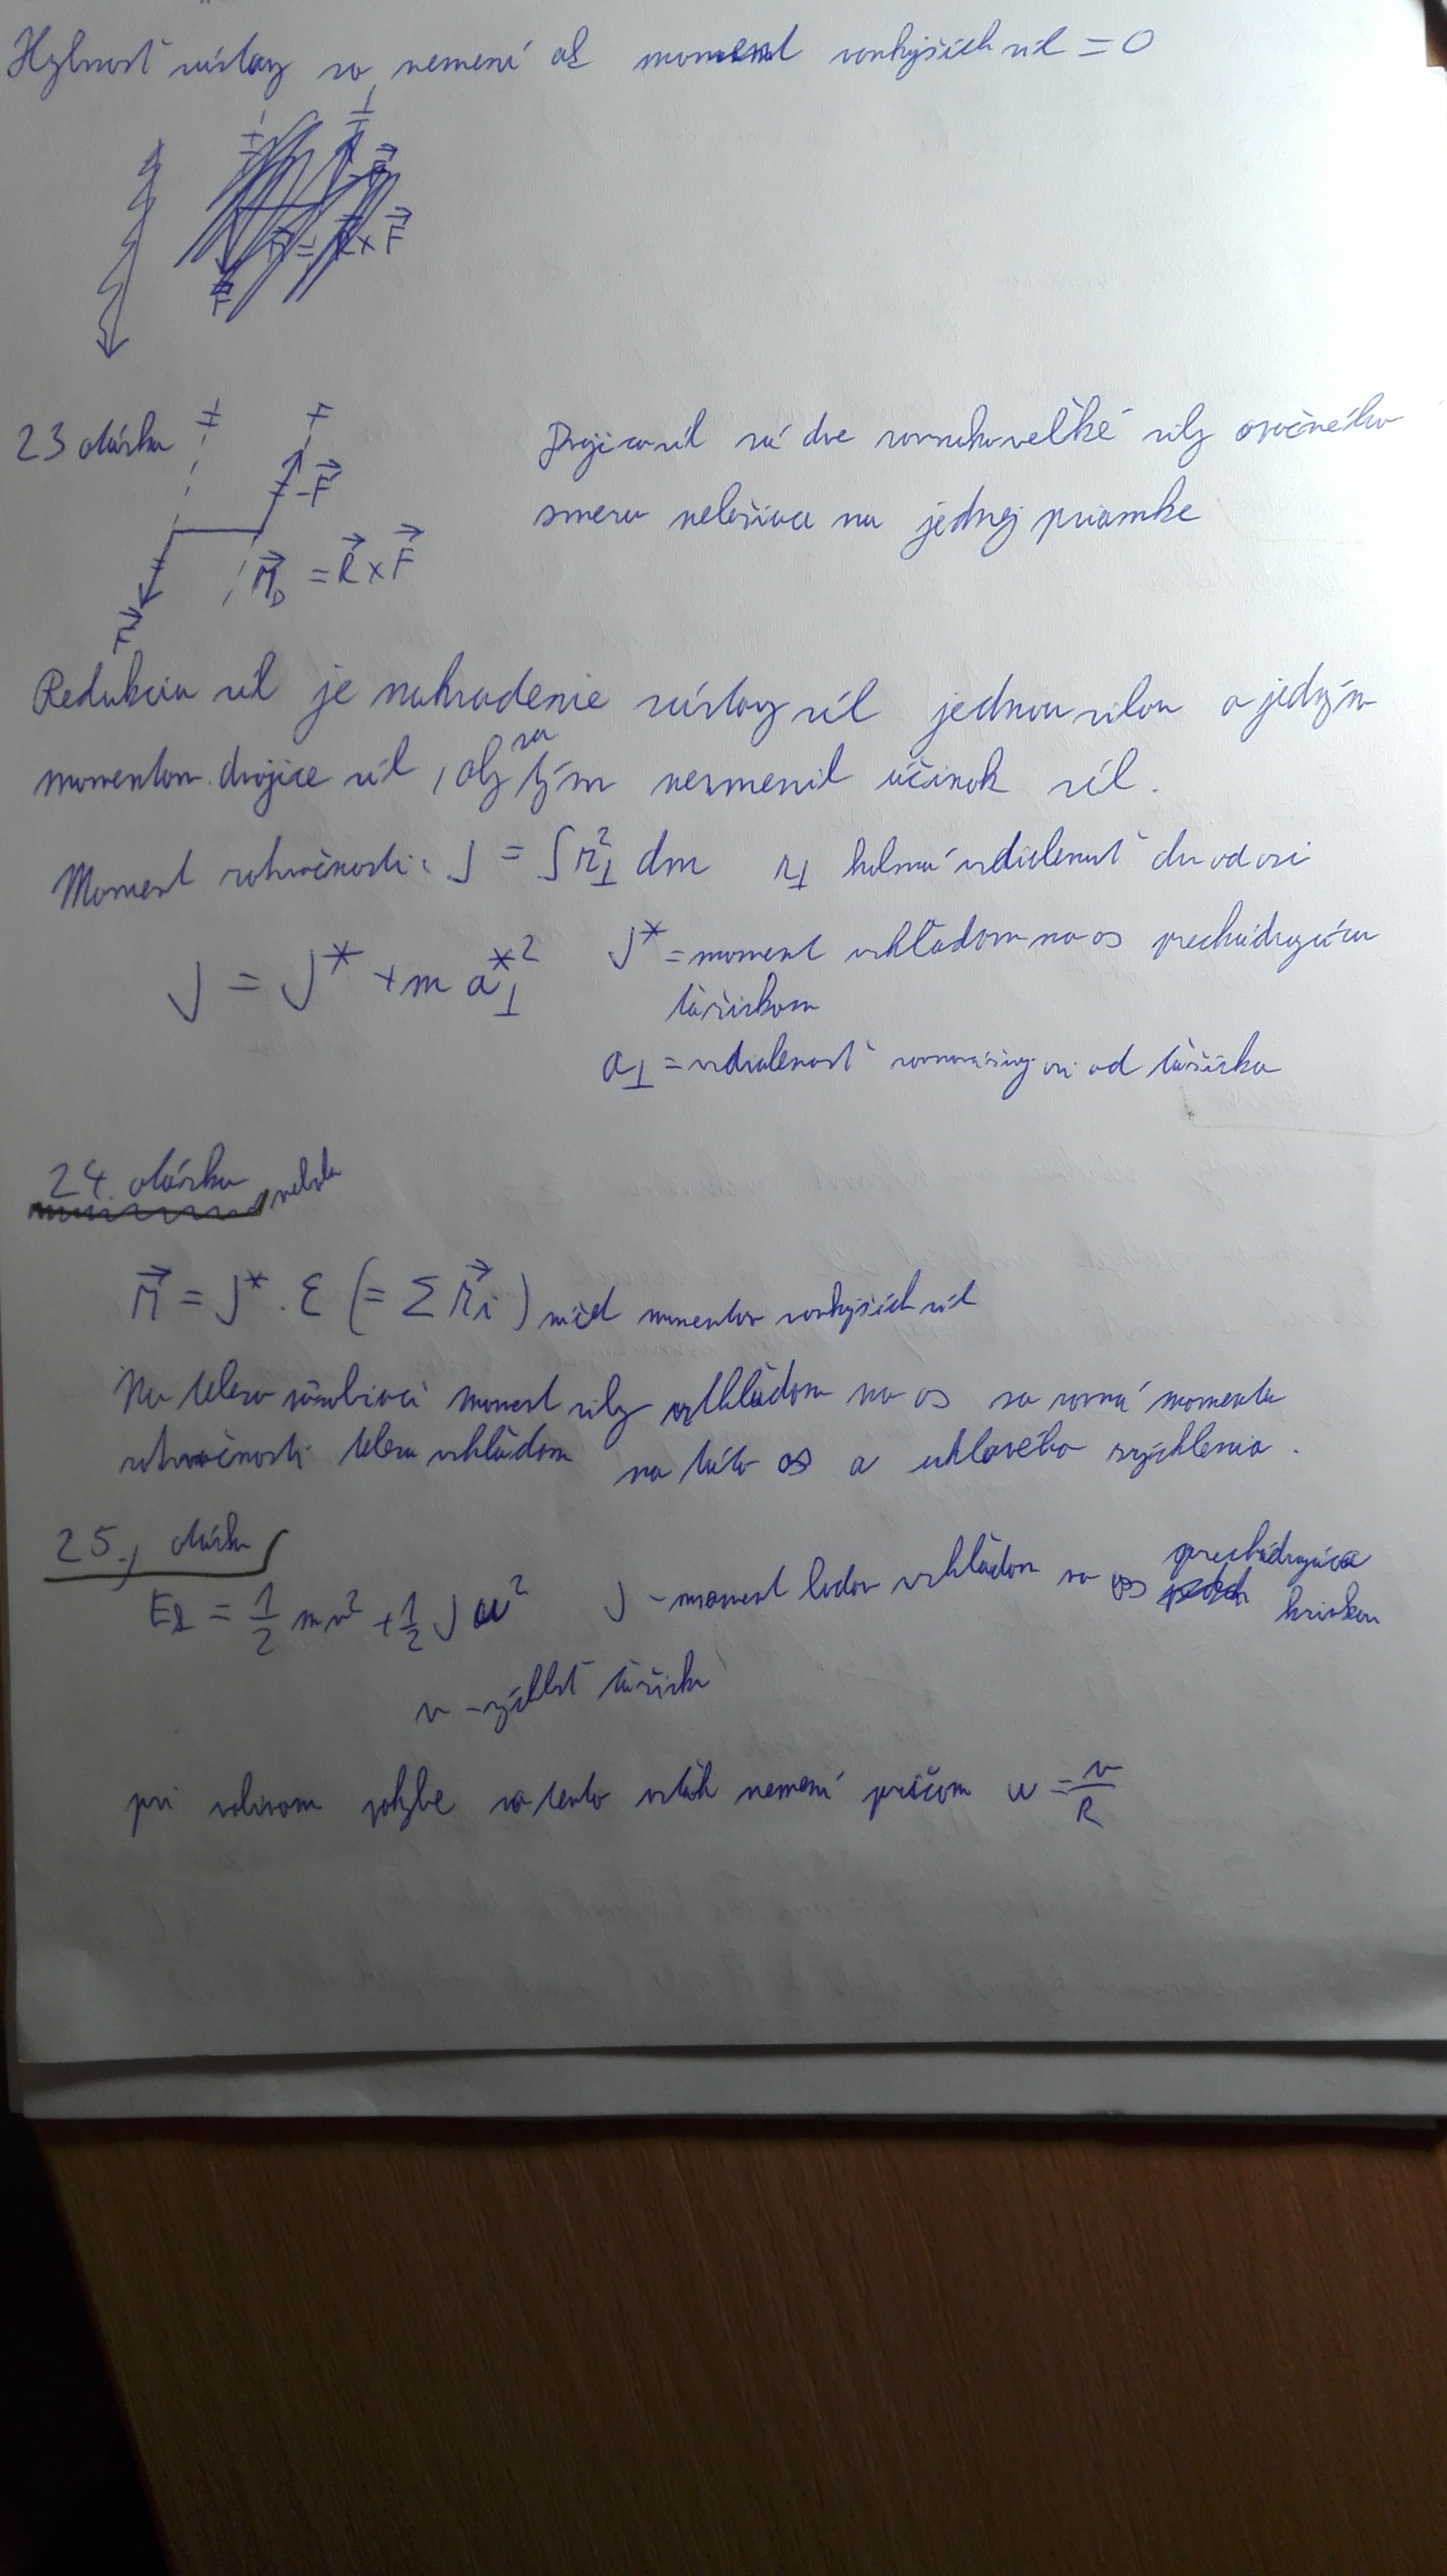 Hybnosť sústavy sa nemení ak moment vonkajších síl = 0
F
M = R × F
F
23 otázka
-F
M_D = R × F
F
Dvojica síl sú dve rovnako veľké sily opačného
smeru neležiace na jednej priamke
Redukcia síl je nahradenie sústavy síl jednou silou a jedným
momentom dvojice síl, aby sa tým nezmenil účinok síl.
Moment zotrvačnosti: J = ∫ r⊥² dm r⊥ kolmá vzdialenosť dm od osi
J = J* + m a⊥*² J* = moment vzhľadom na os prechádzajúcu
ťažiskom
a⊥ = vzdialenosť osi od ťažiska
24. otázka nebola
M = J* . ε (= Σ Mi) momentov vonkajších síl
Na teleso pôsobiaci moment sily vzhľadom na os sa rovná momentu
zotrvačnosti telesa vzhľadom na túto os a uhlového zrýchlenia.
25., otázka
Ek = 1/2 mv² + 1/2 Jω² J - moment vzhľadom na os prechádzajúca
v - rýchlosť ťažiska
pri pohybe sa tento vzťah nemení pričom ω = v/R